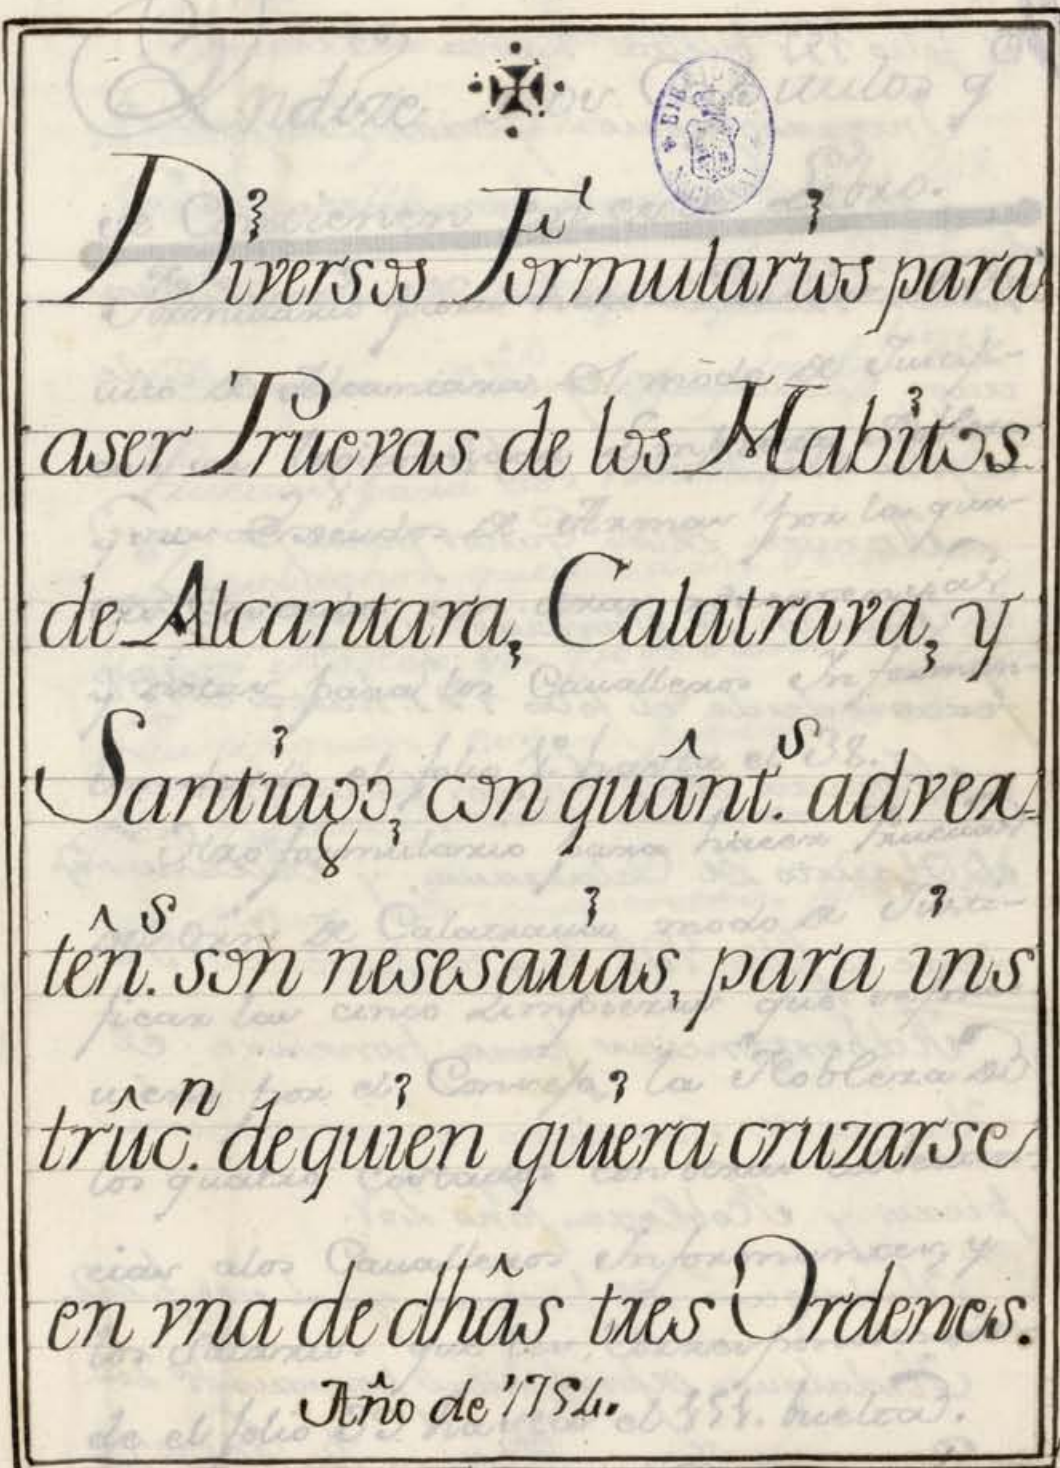 Diversos Formularios para
aser Pruevas de los Habitos
de Alcantara, Calatrava, y
Santiago, con quânt.ˢ adver=
tên.ˢ son nesesarias, para ins
trûc.ⁿ de quien quiera cruzarse
en vna de dhâs tres Ordenes.
Año de 1754.